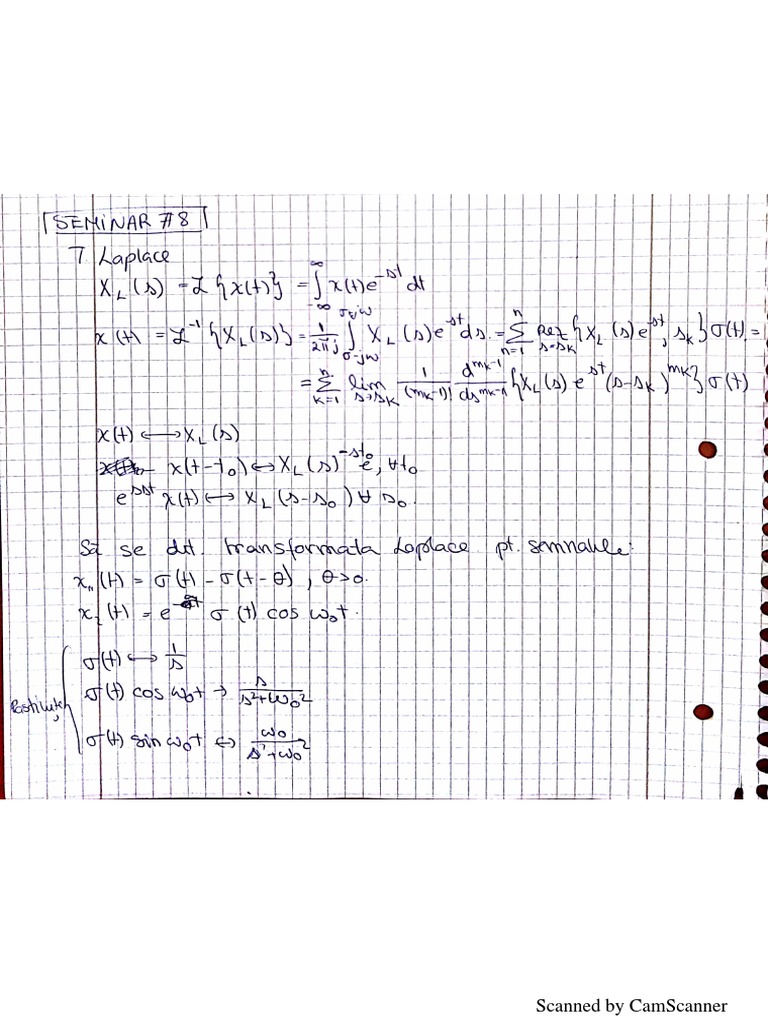 SEMINAR #8
T Laplace
X_L(s) = ℒ{x(t)} = ∫_{-∞}^{∞} x(t)e^{-st} dt
x(t) = ℒ^{-1}{X_L(s)} = 1/(2πj) ∫_{σ-jω}^{σ+jω} X_L(s)e^{st}ds. = Σ_{n=1}^{n} Rez_{s=s_k} {X_L(s)e^{st}, s_k}σ(t). =
= Σ_{k=1}^{n} lim_{s→s_k} 1/(m_k-1)! d^{m_k-1}/ds^{m_k-1} {X_L(s) e^{st}(s-s_k)^{m_k}}σ(t)
x(t) ⟷ X_L(s)
x(t-t_0) ↔ X_L(s) e^{-st_0}, ∀t_0
e^{s_0t} x(t) ⟷ X_L(s-s_0) ∀ s_0.
Să se det. transformata Laplace pt. semnalele:
x_1(t) = σ(t) - σ(t-θ), θ>0.
x_2(t) = e σ(t) cos ω_0t.
σ(t) ⟷ 1/s
σ(t) cos ω_0t → s/(s²+ω_0²)
σ(t) sin ω_0t ↔ ω_0/(s²+ω_0²)
Scanned by CamScanner